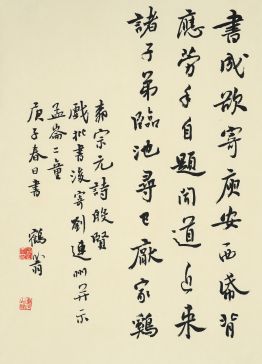 書成欲寄庾安西帋背
應勞手自題聞道近來
諸子弟臨池尋已厭家鷄
柳宗元詩殷賢
戲批書後寄劉連州并示
孟崙二童
庚子春日書
鶴翁